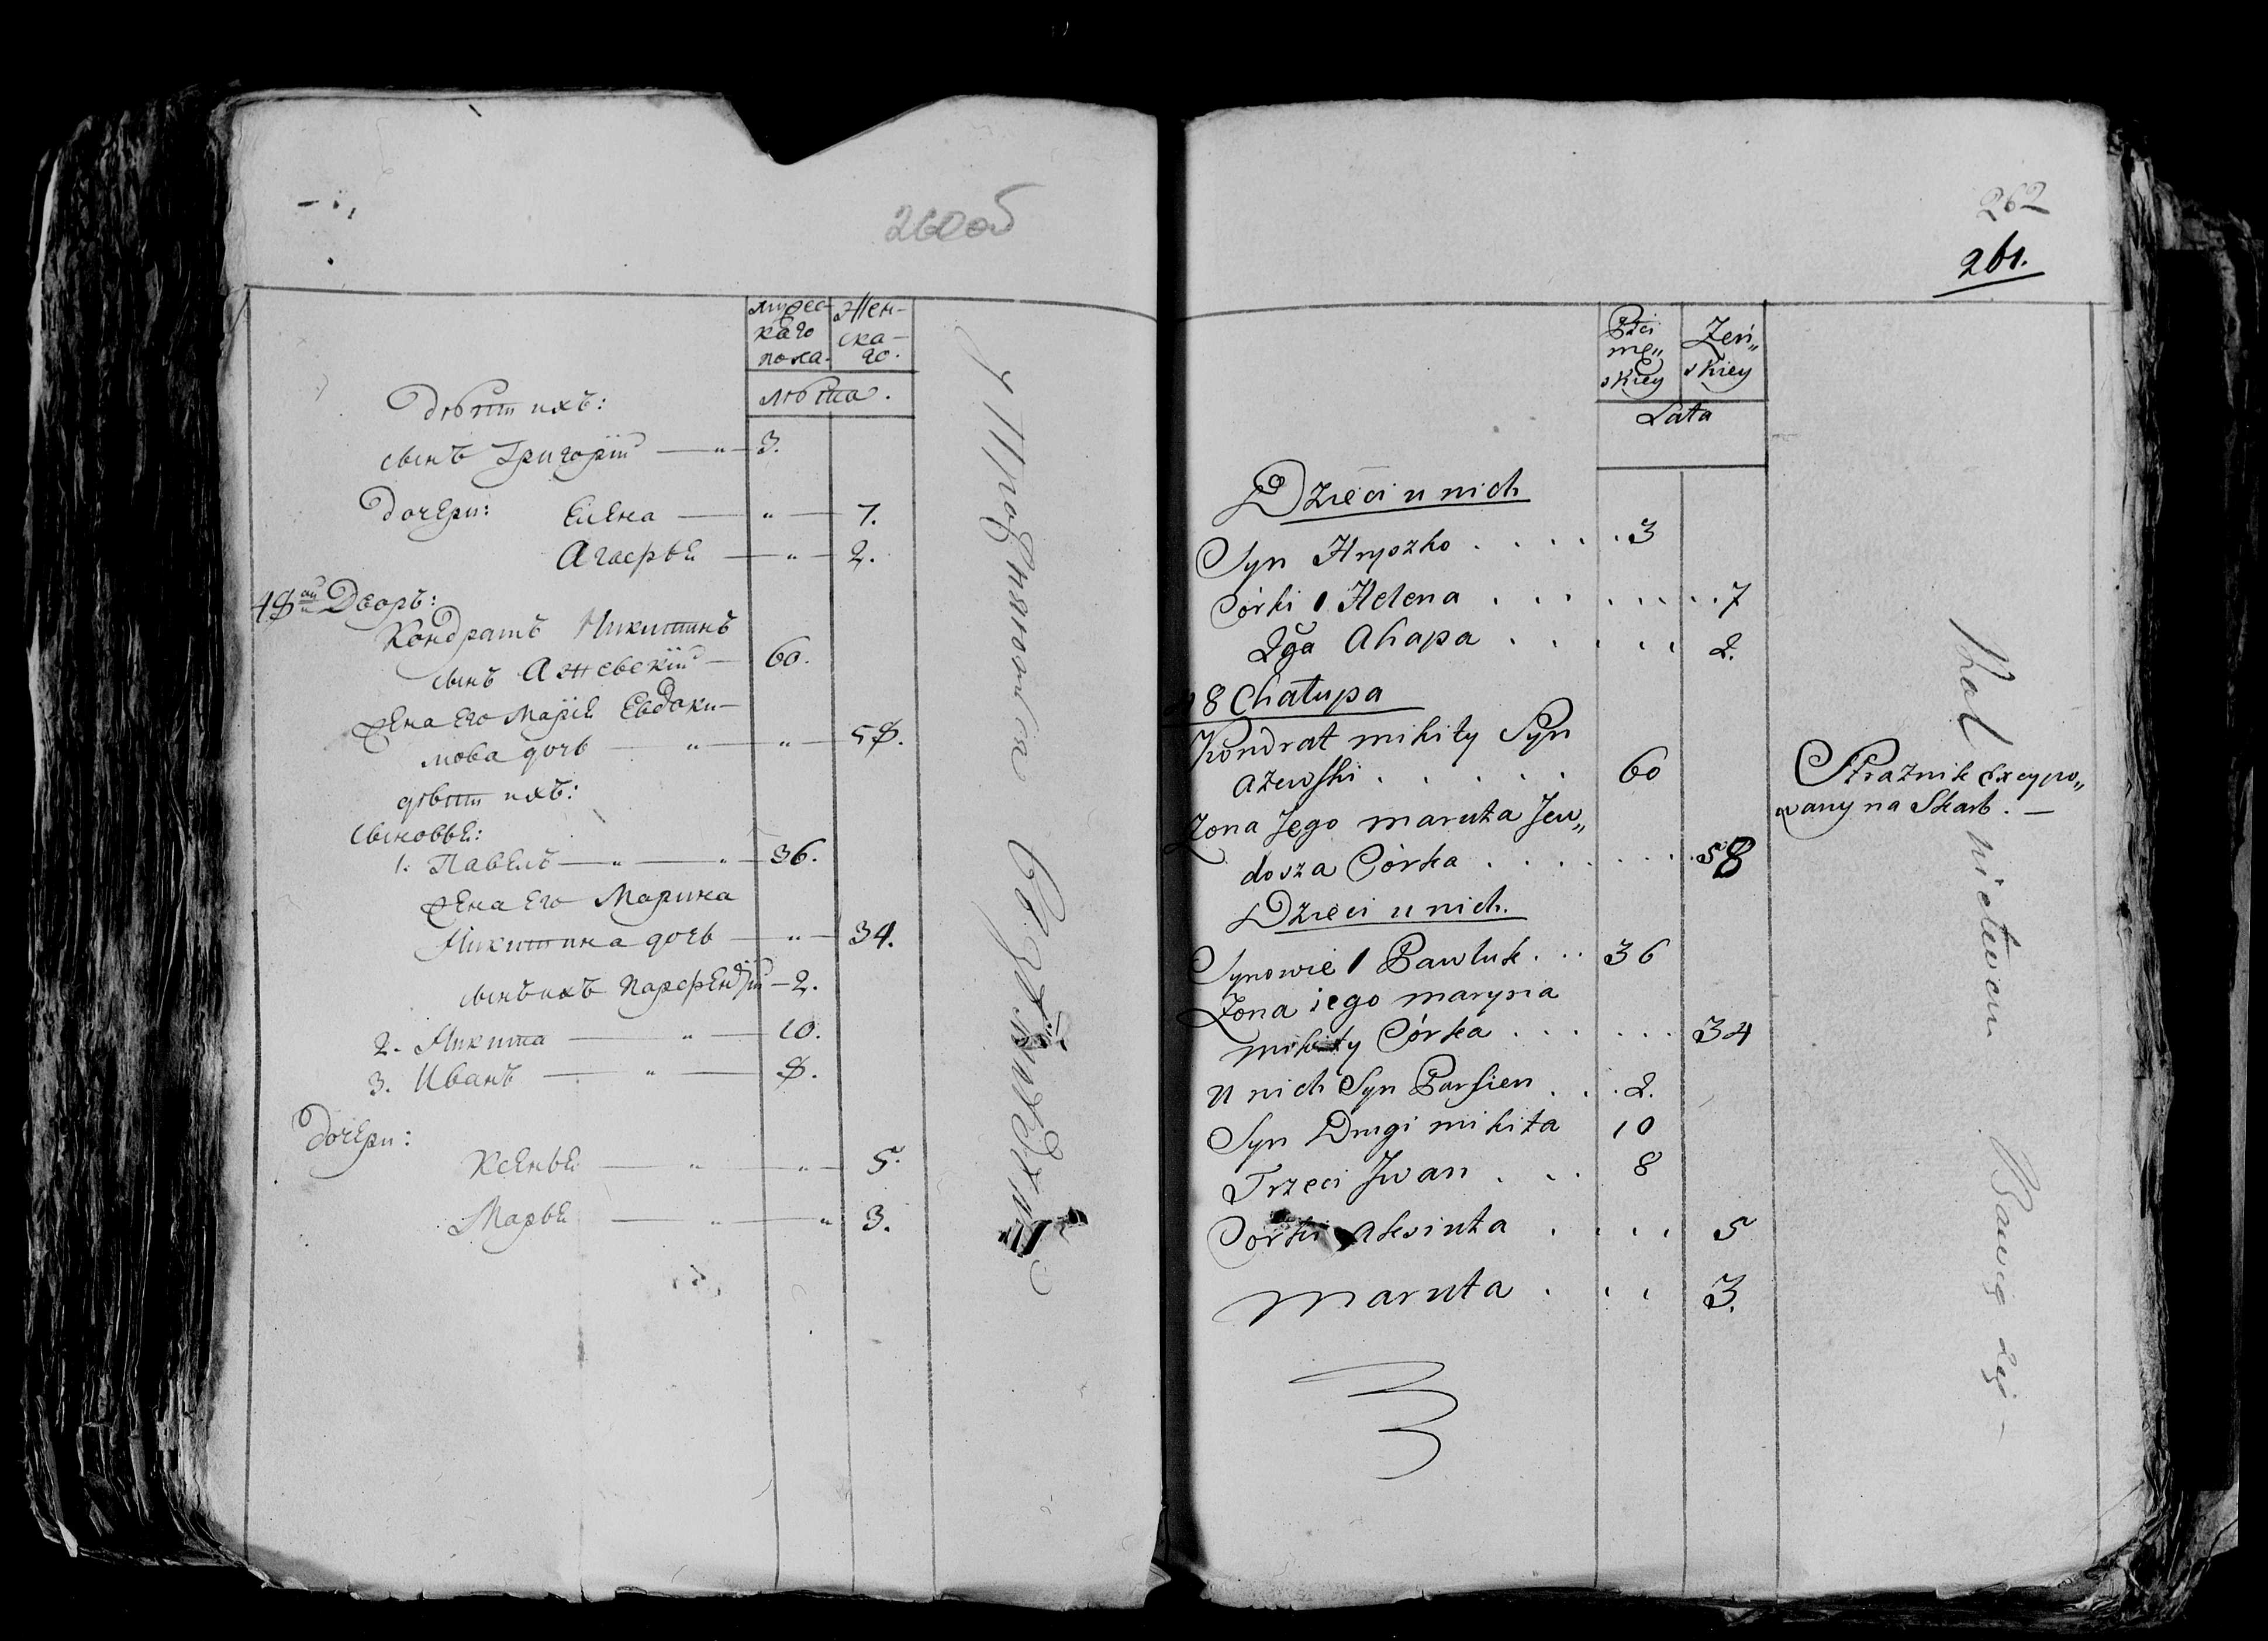 260об
мужес-
каго
пола.
Жен-
ска-
го.
лѣта.
Дѣти ихъ:
сынъ Григорій — „ — 3.
Дочери: Елена — „ — 7.
Агафья — „ — 2.
48ой Дворъ:
Кондратъ Никитинъ
сынъ Ажевскій — 60.
жена Его Марія Евдоки-
мова дочь — „ — „ — 58.
дѣти ихъ:
сыновья:
1. Павелъ — „ — „ — 36.
жена Его Марина
Никитина дочь — „ — 34.
сынъ ихъ Парфендій — 2.
2. Никита — „ — 10.
3. Иванъ — „ — 8.
Дочери:
Ксенья — „ — „ — 5.
Марья — „ — „ 3.
262
261.
Płci
mę„
skiey
Żeń„
skiey
Lata
Dzieci u nich
Syn Hryszko . . . . . 3
Córki 1 Helena . . . . . . . 7
2ga Ahapa . . . . . 2.
48 Chałupa
Kondrat mikity Syn
Ażewski . . . . . . 60
Strażnik Excypo„
wany na Skarb. —
Żona Jego maruta Jew„
dosza Córka . . . . . . . 58
Dzieci u nich.
Synowie 1 Pawluk . . . 36
Żona iego marysia
mikity Córka . . . . . . 34
U nich Syn Parfien . . . 2.
Syn Drugi mikita 10
Trzeci Jwan . . . 8
Córki Aksiuta . . . . 5
Maruta . . . 3.